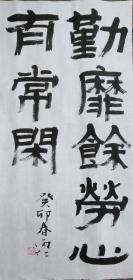 勤靡餘勞心
有常閑
癸卯春